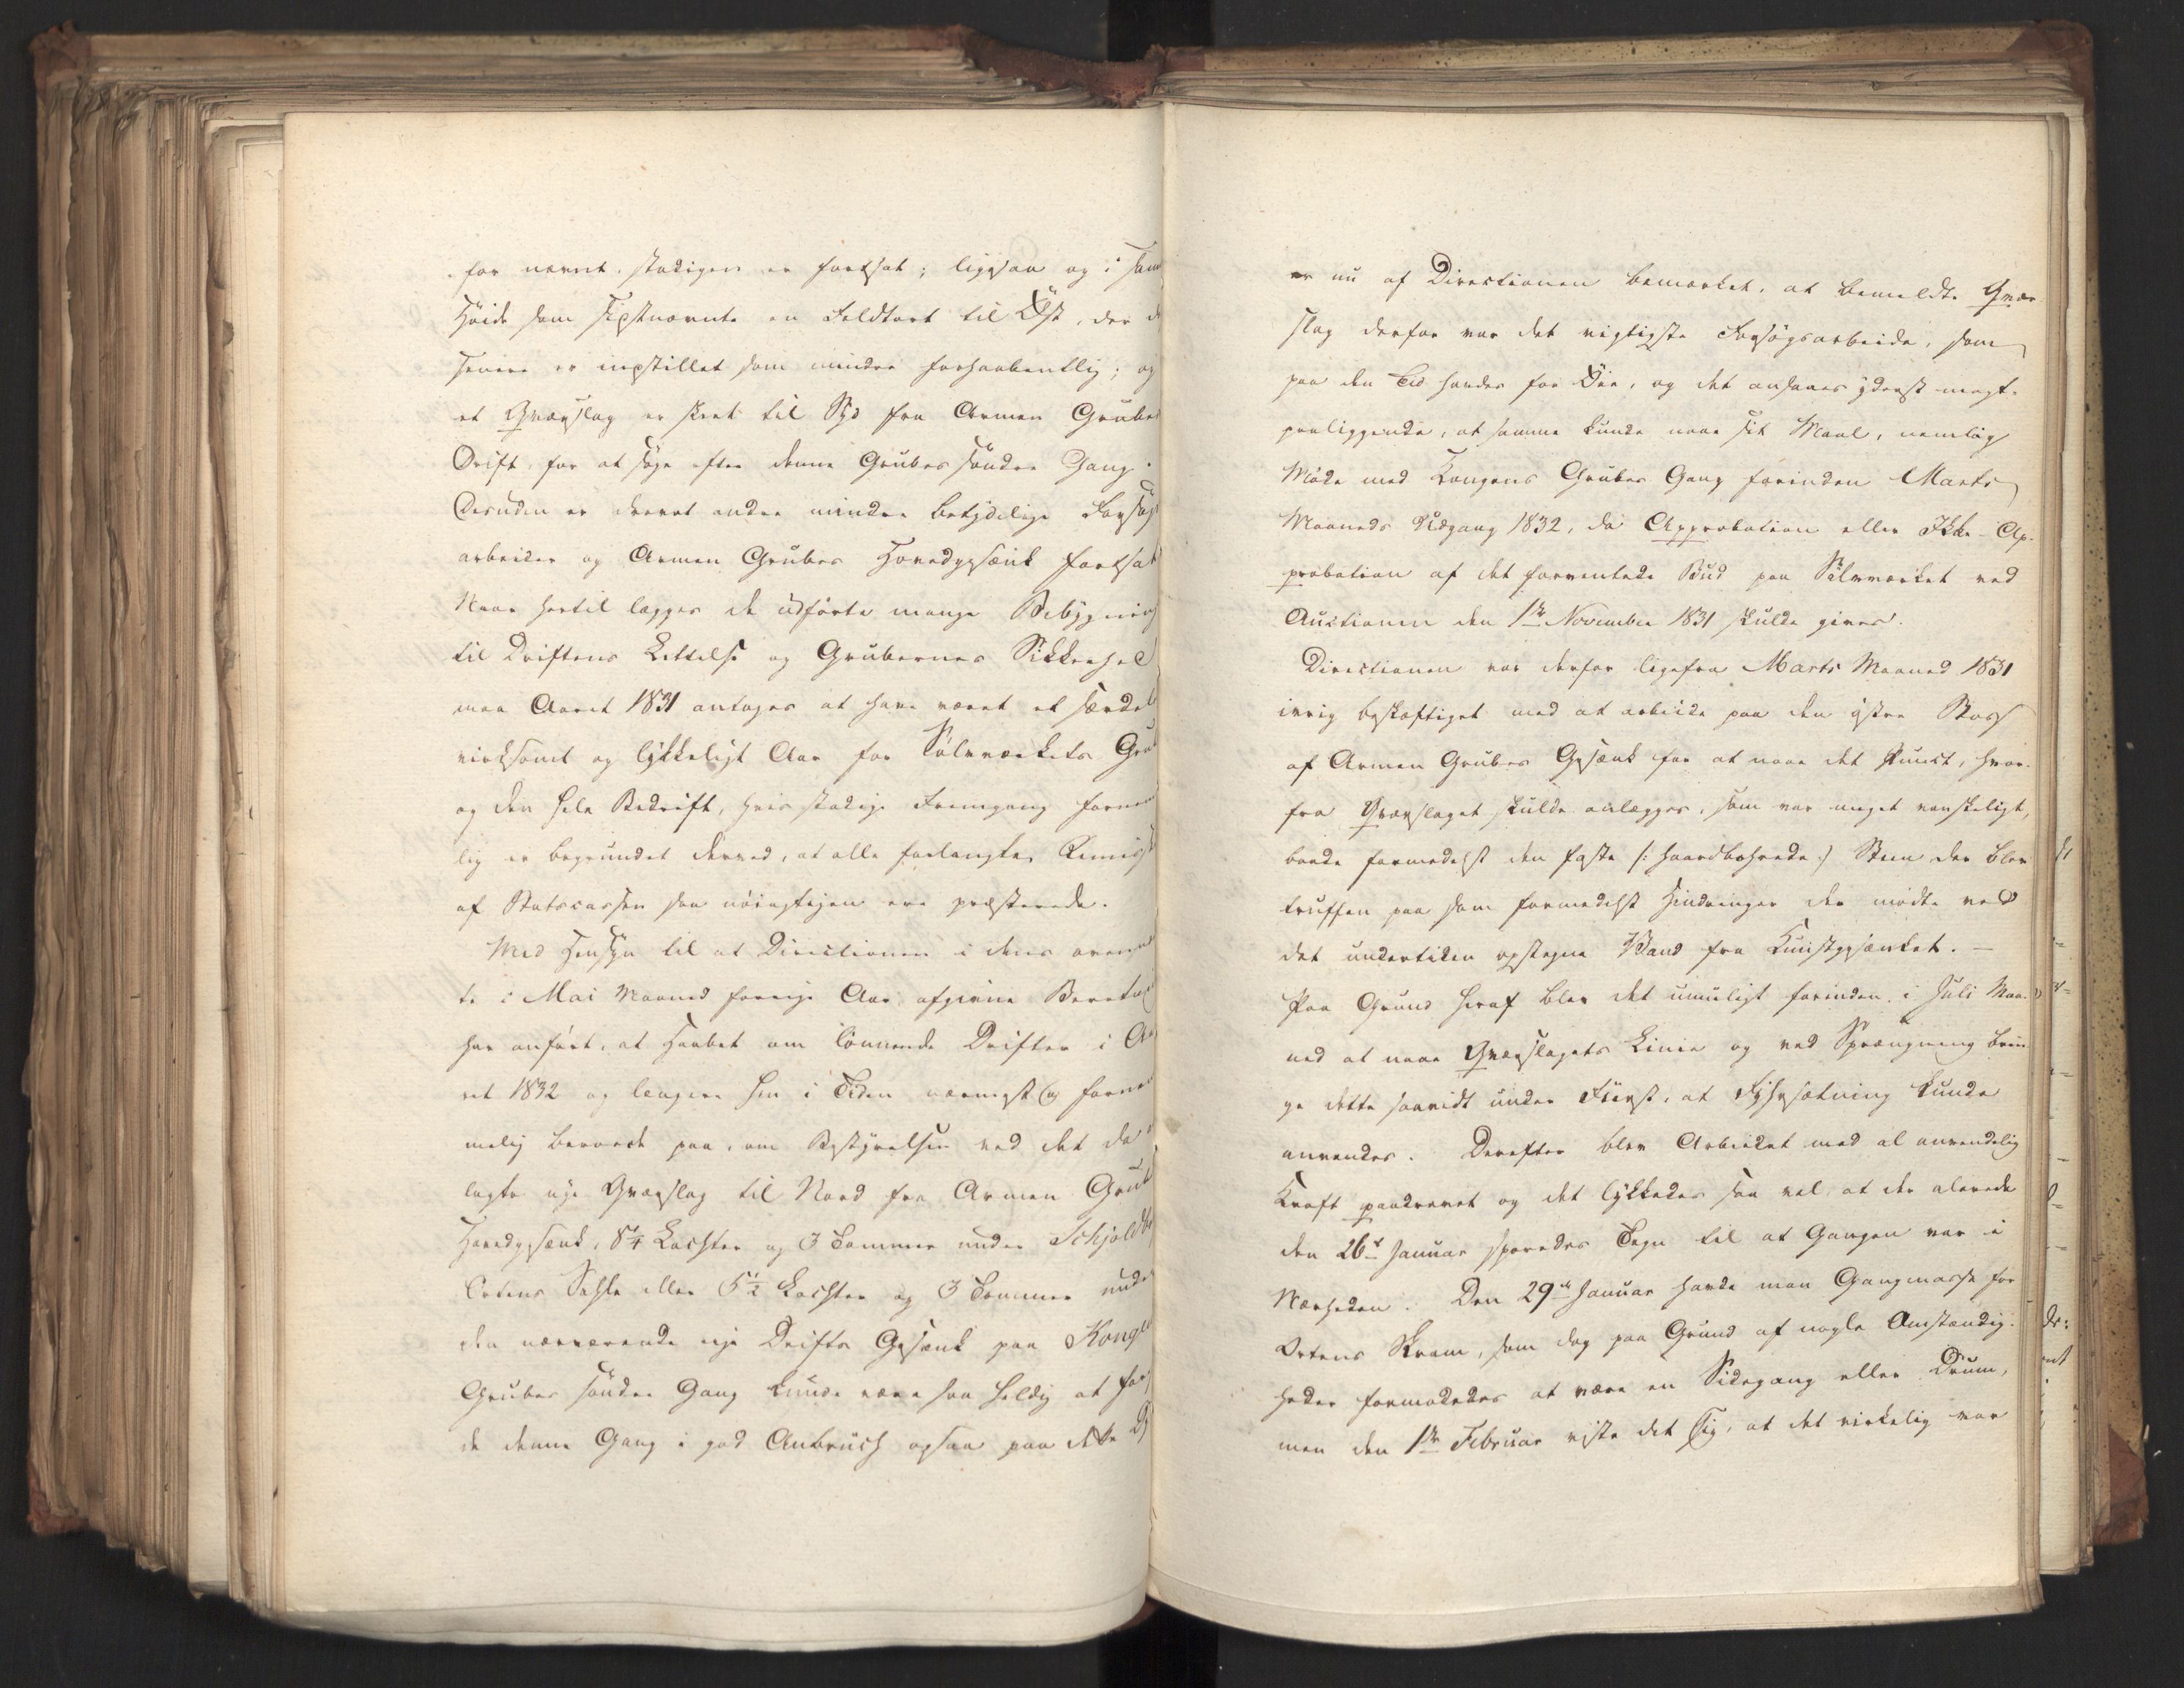 for nævnt, stadigen er fortsat; ligesaa og i sam
Høide som sistnævnte en Feldtort til Øst, der d
senere er inqstillet som mindre forhaabentlig; og
et Qværslag er skeet til Syd fra Armen Grubes
Drift, for at søge efter denne Grubes søndre Gang.
Desuden er drevet andre mindre betydelige Forsøgs
arbeider og Armen Grubes Hovedgesænk fortsat
Naar hertil lægges de udførte mange Bebygning
til Driftens Lettelse og Grubernes Sikkerhed
maa Aaret 1831 antages at have været et særdel
virksomt og lykkeligt Aar for Sølvværkets Gru
og den hele Bedrift, hvis stadige Fremgang fornem
lig er begrundet derved, at alle forlangte Remiss
af Statscassen saa nøiagtigen ere præsterede.
Med Hensyn til at Directionen i dens
te i Mai Maaned forrige Aar afgivne Beretni
har anført, at Haabet om lönnende Drifter i Aa
ret 1832 og længere hen i Tiden nærmest og forne
melig beroede paa, om Bestyrelsen ved det da
lagte nye Qværslag til Nord fra Armen Grub
Hovedgesænk, 8¼ Lachter og 3 Tommer under Schjoldb
Ortens Sohle eller 5½ Lachter og 3 Tommer unde
den nærværende nye Drifts Gesænk paa Konge
Grubes søndre Gang kunde være saa heldig at for
de denne Gang i god Anbruch ogsaa paa dette Dy
er nu af Directionen bemærket, at bemeldte Qvær
slag derfor var det vigtigste Forsøgsarbeide, som
paa den Tid havdes for Øie, og det ansaaes yderst magt-
paaliggende, at samme kunde naae sit Maal, nemlig
Møde med Kongens Grubes Gang forinden Marts
Maaneds Udgang 1832, da Approbation eller Ikke-Ap-
probation af det forventede Bud paa Sølvværket ved
Auctionen den 1ste November 1831 skulde gives.
Directionen var derfor ligefra Marts Maaned 1831
ivrig beskæftiget med at arbeide paa den østre Stoss
af Armen Grubes Gesænk for at naae det Punct, hvor-
fra Qværslaget skulde anlægges, som var meget vanskeligt,
baade formedelst den faste /: haardborede :/ Steen der blev
truffen paa som formedelst Hindringer der mødte ved
det undertiden opstegne Vand fra Kunstgesænket. —
Paa Grund heraf blev det umuligt forinden i Juli Maa-
ned at naae Qværslagets Linie og ved Sprængning brin
ge dette saavidt under Fierst, at Fyhrsætning kunde
anvendes. Derefter blev Arbeidet med al anvendelig
Kraft paadrevet og det lykkedes saa vel, at der alerede
den 26de Januar sporedes Tegn til at Gangen var i
Nærheden. Den 29de Januar havde man Gangmasse for
Ortens Stram, som dog paa Grund af nogle Omstændig-
heder formodedes at være en Sidegang eller Drum,
men den 1ste Februar viste det sig, at det virkelig var